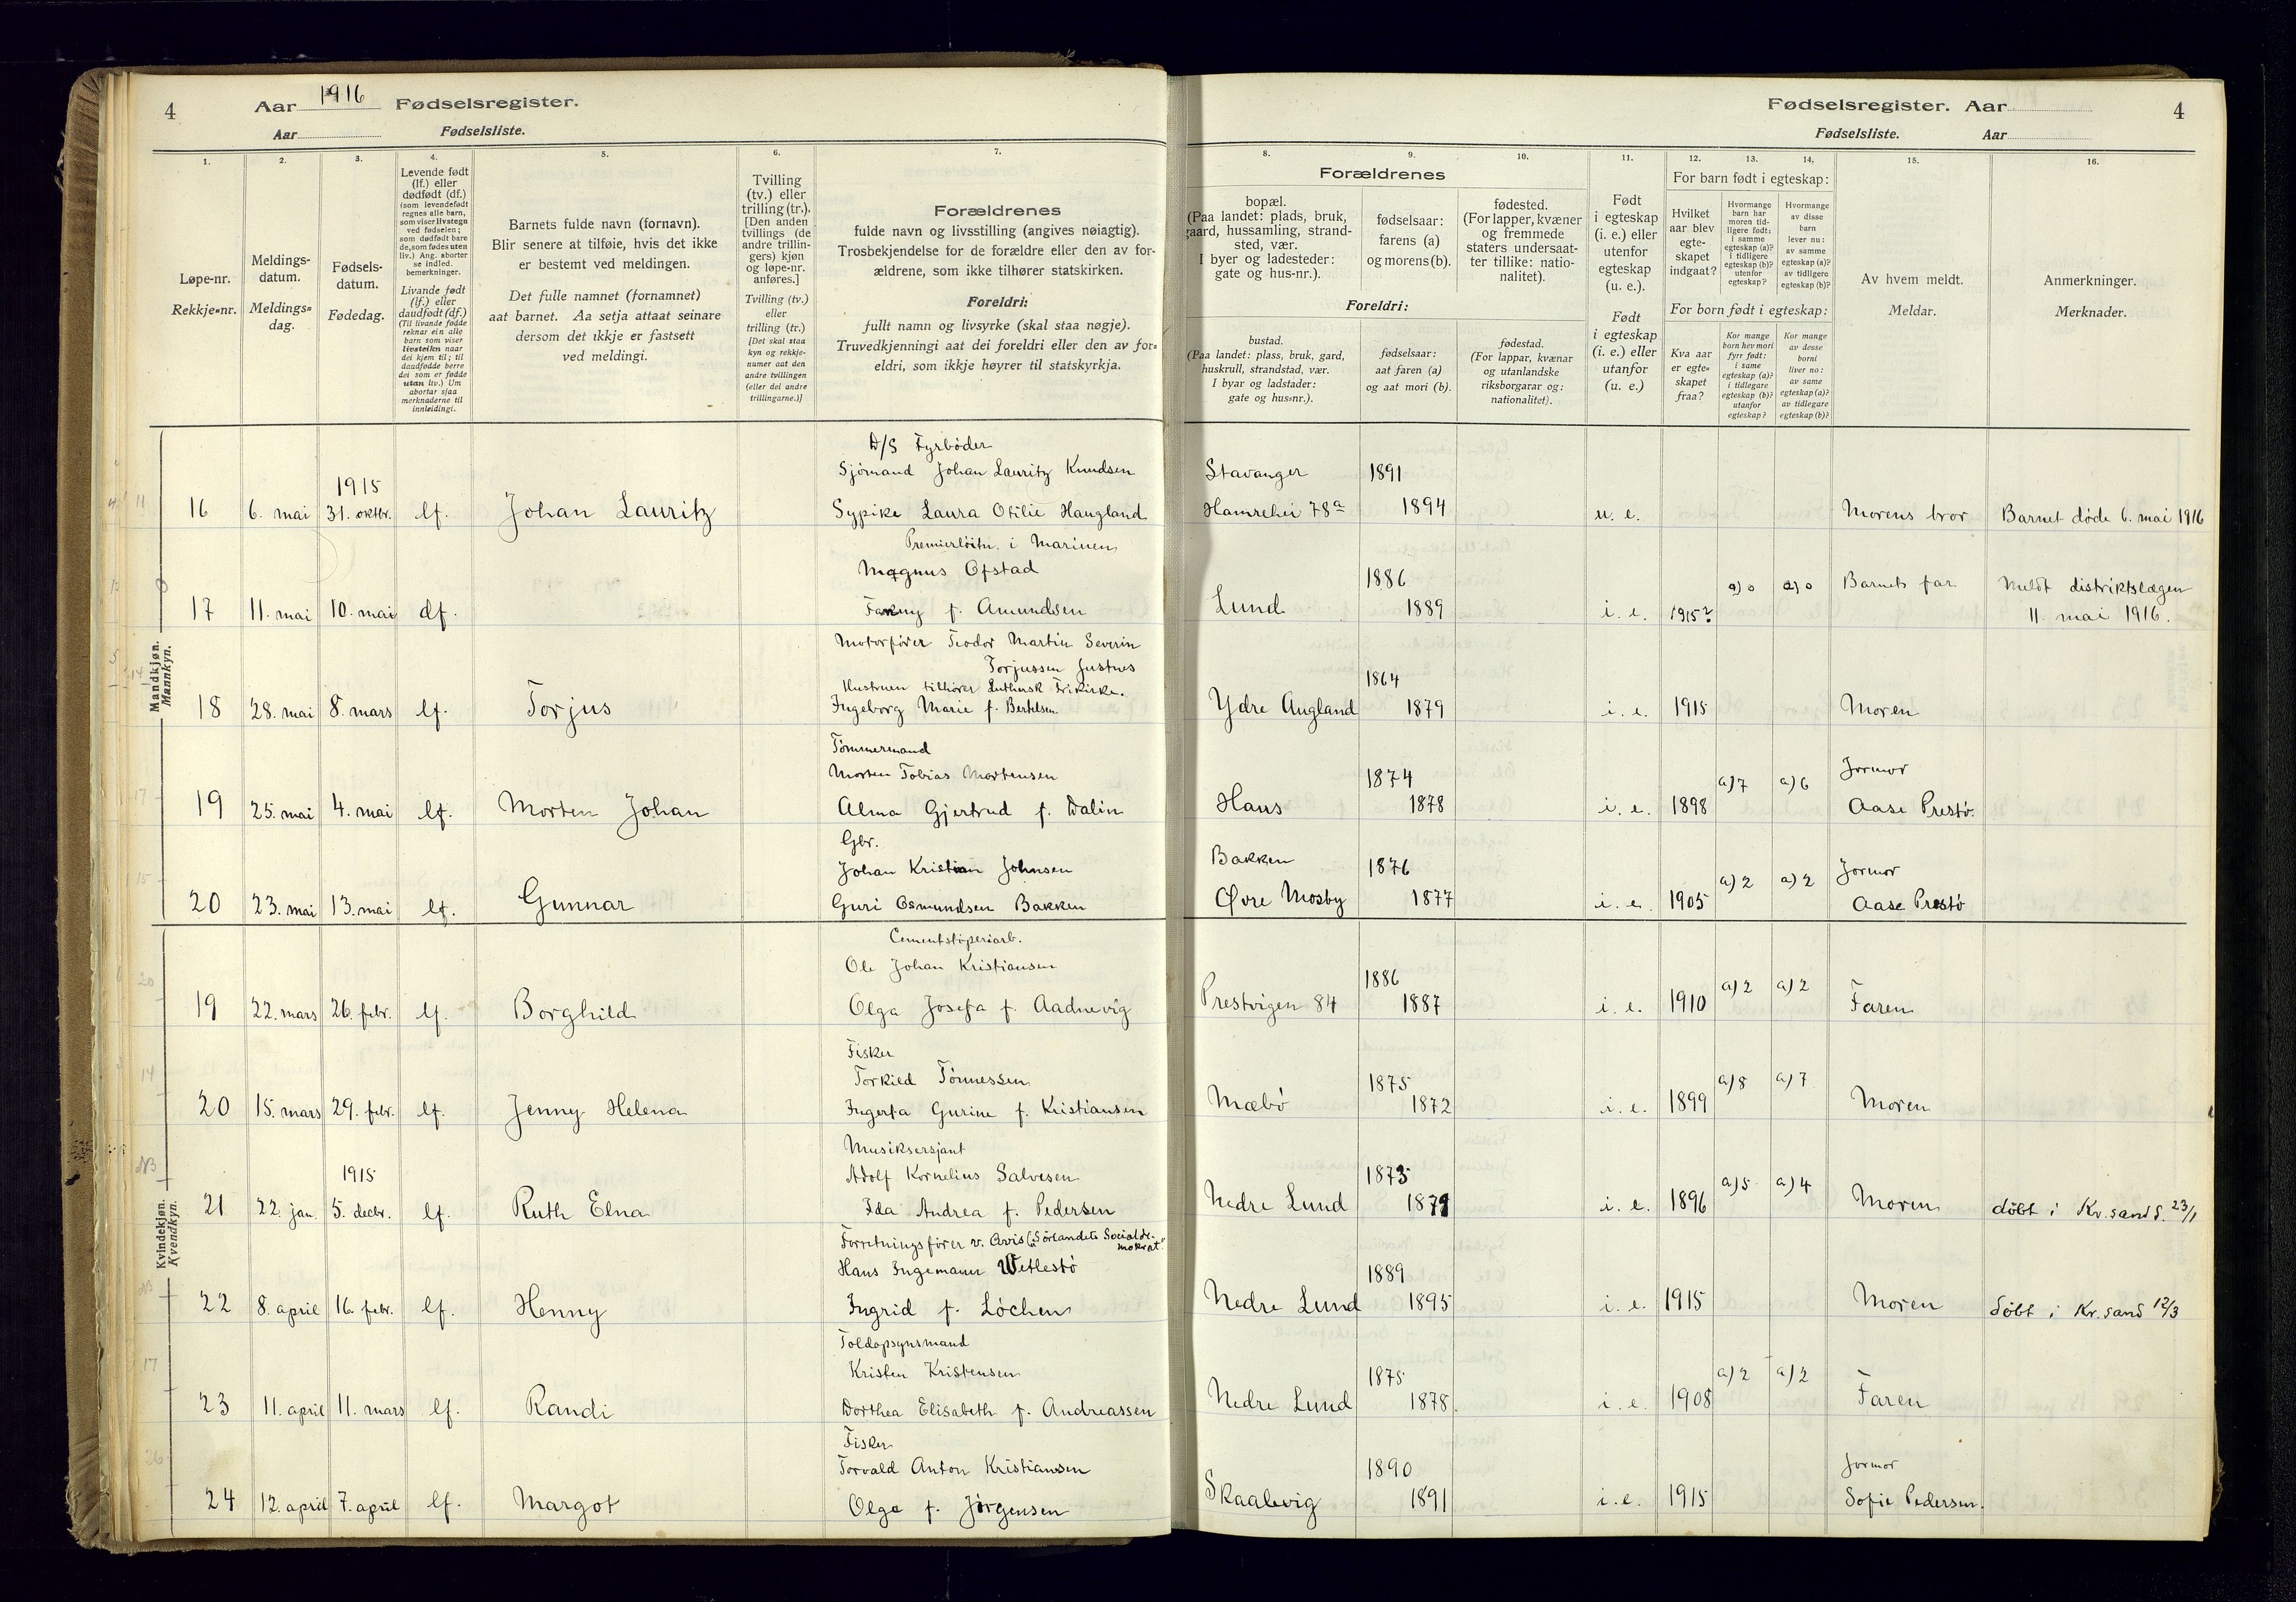 4
Aar 1916 Fødselsregister.
Aar Fødselsliste.
1.
2.
3.
4.
5.
6.
7.
Løpe-nr.
Rekkje-nr.
Meldings-
datum.
Meldings-
dag.
Fødsels-
datum.
Fødedag.
Levende født
(lf.) eller
dødfødt (df.)
(som levendefødt
regnes alle barn,
som viser livstegn
ved fødselen;
som dødfødt bare
de, som fødes uten
liv.) Ang. aborter
se indled.
bemerkninger.
Livande født
(lf.) eller
daudfødt (df.)
(Til livande fødde
reknar ein alle
barn som viser
livsteikn naar
dei kjem til; til
daudfødde berre
dei som er fødde
utan liv.) Um
abortar sjaa
merknaderne til
innleidingi.
Barnets fulde navn (fornavn).
Blir senere at tilføie, hvis det ikke
er bestemt ved meldingen.
Det fulle namnet (fornamnet)
aat barnet. Aa setja attaat seinare
dersom det ikkje er fastsett
ved meldingi.
Tvilling
(tv.) eller
trilling (tr.).
[Den anden
tvillings (de
andre trillin-
gers) kjøn
og løpe-nr.
anføres.]
Tvilling (tv.)
eller
trilling (tr.)
[Det skal staa
kyn og rekkje-
numer aat den
andre tvillingen
(eller dei andre
trillingarne.)]
Forældrenes
fulde navn og livsstilling (angives nøiagtig).
Trosbekjendelse for de forældre eller den av for-
ældrene, som ikke tilhører statskirken.
Foreldri:
fullt namn og livsyrke (skal staa nøgje).
Truvedkjenningi aat dei foreldri eller den av for-
eldri, som ikkje høyrer til statskyrkja.
Mandkjøn.
Mannkyn.
D/S Fyrbøder
Sjømand Johan Lauritz Knudsen
1915
16 6. mai 31. oktbr. lf. Johan Lauritz Sypike Laura Otilie Haugland
Premierløitn. i Marinen
Magnus Ofstad
17 11. mai 10. mai df. Fanny f. Amundsen
Motorfører Teodor Martin Severin
Torjussen Justnes
Hustruen tilhører Luthersk Frikirke.
18 28. mai 8. mars lf. Torjus Ingeborg Marie f. Bertelsen
Tømmermand
Morten Tobias Mortensen
19 25. mai 4. mai lf. Morten Johan Alma Gjertrud f. Dalin
Gbr.
Johan Kristian Johnsen
20 23. mai 13. mai lf. Gunnar Guri Osmundsen Bakken
Kvindekjøn.
Kvendkyn.
Cementstøperiarb.
Ole Johan Kristiansen
19 22. mars 26. febr. lf. Borghild Olga Josefa f. Aadnevig
Fisker
Torkild Tønnessen
20 15. mars 29. febr. lf. Jenny Helena Ingerta Gurine f. Kristiansen
Musiksersjant
Adolf Kornelius Salvesen
1915
21 22. jan. 5. decbr. lf. Ruth Elna Ida Andrea f. Pedersen
Forretningsfører v. Avis („Sørlandets Socialde-
mokrat".
Hans Ingemann Wetlestø
22 8. april 16. febr. lf. Henny Ingrid f. Løchen
Toldopsynsmand
Kristen Kristensen
23 11. april 11. mars lf. Randi Dorthea Elisabeth f. Andreassen
Fisker
Torvald Anton Kristiansen
24 12. april 7. april lf. Margot Olga f. Jørgensen
Fødselsregister. Aar 4
Fødselsliste. Aar
8.
9.
10.
11.
12.
13.
14.
15.
16.
Forældrenes
bopæl.
(Paa landet: plads, bruk,
gaard, hussamling, strand-
sted, vær.
I byer og ladesteder:
gate og hus-nr.).
fødselsaar:
farens (a)
og morens (b).
fødested.
(For lapper, kvæner
og fremmede
staters undersaat-
ter tillike: natio-
nalitet).
Foreldri:
bustad.
(Paa landet: plass, bruk, gard,
huskrull, strandstad, vær.
I byar og ladstader:
gate og hus-nr.).
fødselsaar:
aat faren (a)
og aat mori (b).
fødestad.
(For lappar, kvænar
og utanlandske
riksborgarar og:
nationalitet).
Født
i egteskap
(i. e.) eller
utenfor
egteskap
(u. e.).
Født
i egteskap
(i. e.) eller
utanfor
(u. e.)
For barn født i egteskap:
Hvilket
aar blev
egte-
skapet
indgaat?
Hvormange
barn har
moren tid-
ligere født:
i samme
egteskap (a)?
i tidligere
egteskap (b)?
utenfor
egteskap?
Hvormange
av disse
barn
lever nu:
av samme
egteskap (a)?
av tidligere
egteskap (b)?
For born født i egteskap:
Kva aar
er egte-
skapet
fraa?
Kor mange
born hev mori
fyrr født:
i same
egteskap (a)?
i tidlegare
egteskap (b)?
utanfor
egteskap?
Kor mange
av desse
borni
liver no:
av same
egteskap (a)?
av tidlegare
egteskap (b)?
Av hvem meldt.
Meldar.
Anmerkninger.
Merknader.
Stavanger 1891
Hamrehei 78a 1894 u. e. Morens bror Barnet døde 6. mai 1916
1886 a) 0 a) 0 Barnets far Meldt distriktslægen
Lund 1889 i. e. 1915? 11. mai 1916.
1864
Ydre Augland 1879 i. e. 1915 Moren
1874 a) 7 a) 6 Jormor
Haus 1878 i. e. 1898 Aase Prestø.
Bakken 1876 a) 2 a) 2 Jormor
Øvre Mosby 1877 i. e. 1905 Aase Prestø
1886 a) 2 a) 2
Prestvigen 84 1887 i. e. 1910 Faren
1875 a) 8 a) 7
Mæbø 1872 i. e. 1899 Moren
1873 a) 5 a) 4
Nedre Lund 1879 i. e. 1896 Moren døbt i Kr.sand S. 23/1
1889
Nedre Lund 1895 i. e. 1915 Moren døbt i Kr.sand 12/3
1875 a) 2 a) 2
Nedre Lund 1878. i. e. 1908 Faren
1890 Jormor
Skaalevig 1891 i. e. 1915 Sofie Pedersen.